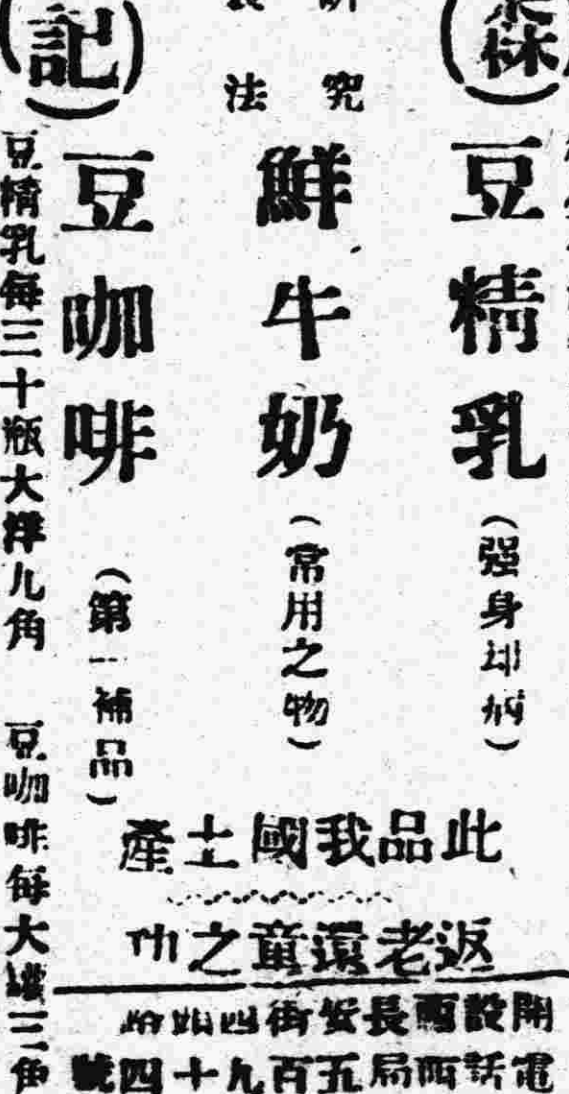 (森)
豆精乳
(强身却病)
究
鮮牛奶
(常用之物)
法
(記)
豆咖啡
(第一補品)
豆精乳每三十瓶大洋九角
豆咖啡每大罐三角
此品我國土產
返老還童之功
開設西長安街四如
電話西局五百九十四號